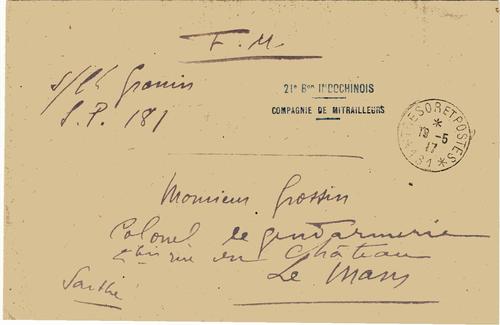 F.M.
S.P. 181
21e Bon INDOCHINOIS
COMPAGNIE DE MITRAILLEURS
TRESOR ET POSTES
*
19 -5
17
* 181 *
Monsieur Grossin
Colonel de gendarmerie
rue du Château
Le Mans
Sarthe